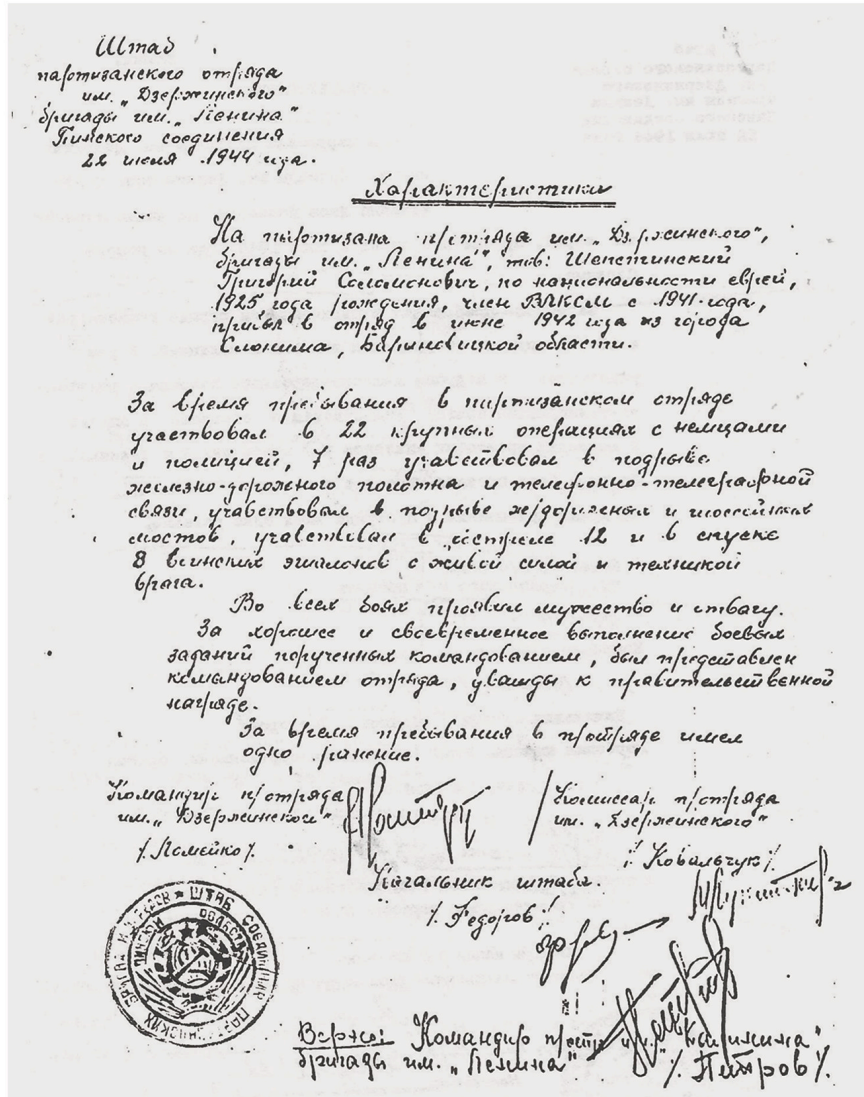 Штаб
партизанского отряда
им. „Дзержинского"
бригады им. „Ленина"
Пинского соединения
22 июля 1944 года.
Характеристика
На партизана п-отряда им. „Дзержинского",
бригады им. „Ленина", тов: Шепетинский
Григорий Соломонович, по национальности еврей,
1925 года рождения, член ВЛКСМ с 1941 года,
прибыл в отряд в июне 1942 года из города
Слонима, Барановицкой области.
За время пребывания в партизанском отряде
участвовал в 22 крупных операциях с немцами
и полицией, 7 раз учавствовал в подрыве
железно-дорожного полотна и телефонно-телеграфной
связи, учавствовал в подрыве ж/дорожных и шоссейных
мостов, учавствовал в 12 и в спуске
8 воинских эшалонов с живой силой и техникой
врага.
Во всех боях проявил мужество и отвагу.
За хорошее и своевременное выполнение боевых
заданий порученных командованием, был представлен
командованием отряда, дважды к правительственной
награде.
За время пребывания в п-отряде имел
одно ранение.
Командир п/отряда
им. „Дзержинского"
/. Ломейко /.
Комиссар п/отряда
им. „Дзержинского"
/. Ковальчук /.
Начальник штаба.
/. Федоров /.
ШТАБ СОЕДИНЕНИЯ ПАРТИЗАНСКИХ БРИГАД
ПИНСКОЙ ОБЛАСТИ
Верно: Командир п-отр. им. „Калинина"
бригады им. „Ленина" /. Петров /.